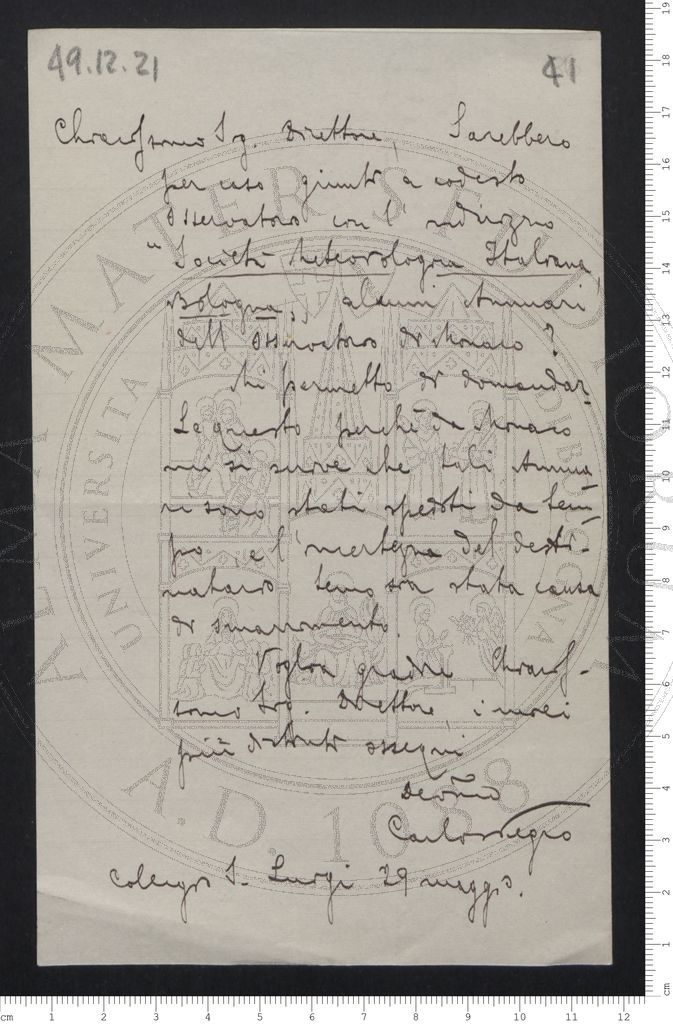 49.12.21
41
Chiarissimo Sig. Direttore, Sarebbero
per caso giunti a codesto
Osservatorio con l'indirizzo
"Società Meteorologica Italiana,
Bologna,, alcuni Annuari
dell'Osservatorio di Monaco?
Mi permetto di domandar-
Le questo perchè da Monaco
mi si scrive che tali Annua-
ri sono stati spediti da tem-
po, e l' del desti-
natario temo sia stata causa
di smarrimento.
Voglia gradire Chiaris-
simo Sig. Direttore, i miei
più distinti ossequi
Dev.mo
Carlo Negro
Collegio S. Luigi 29 maggio.
ALMA MATER STUDIORUM
UNIVERSITA DI BOLOGNA
A.D. 1088
cm 1 2 3 4 5 6 7 8 9 10 11 12
cm 1 2 3 4 5 6 7 8 9 10 11 12 13 14 15 16 17 18 19